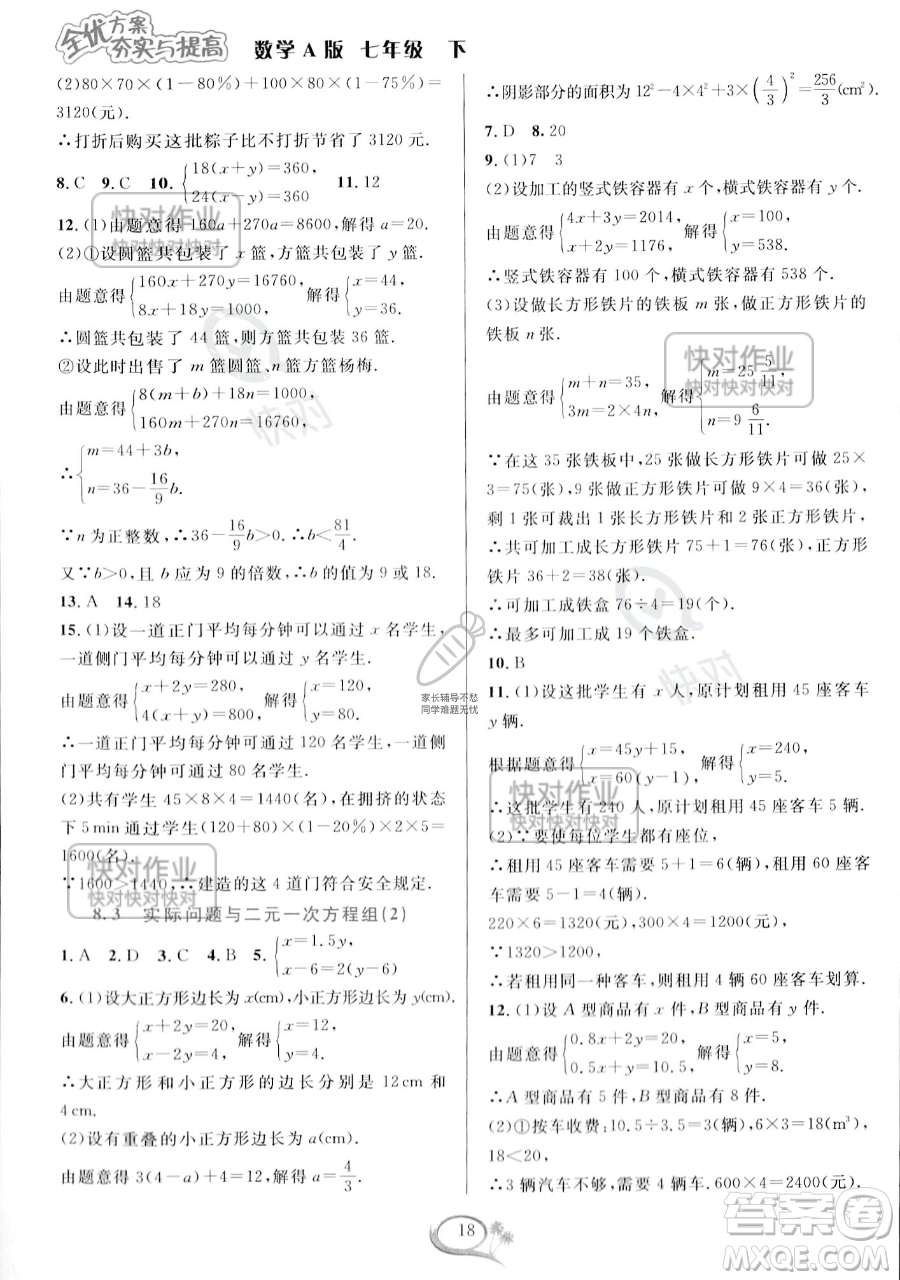 全优方案
夯实与提高
数学A版 七年级 下
(2)80×70×(1-80%)+100×80×(1-75%)=
3120(元).
∴打折后购买这批粽子比不打折节省了3120元.
8.C 9.C 10.{18(x+y)=360,
24(x+y)=360 11.12
12.(1)由题意得160a+270a=8600,解得a=20.
(2)①设圆篮共包装了x篮,方篮共包装了y篮.
由题意得{160x+270y=16760, 解得{x=44,
8x+18y=1000, y=36.
∴圆篮共包装了44篮,则方篮共包装36篮.
②设此时出售了m篮圆篮、n篮方篮杨梅.
由题意得{8(m+b)+18n=1000,
160m+270n=16760.
∴{m=44+3b,
n=36-16/9b.
∵n为正整数,∴36-16/9b>0,∴b<81/4.
又∵b>0,且b应为9的倍数,∴b的值为9或18.
13.A 14.18
15.(1)设一道正门平均每分钟可以通过x名学生,
一道侧门平均每分钟可以通过y名学生.
由题意得{x+2y=280, 解得{x=120,
4(x+y)=800, y=80.
∴一道正门平均每分钟可以通过120名学生,一道侧
门平均每分钟可以通过80名学生.
(2)共有学生45×8×4=1440(名),在拥挤的状态
下5min通过学生(120+80)×(1-20%)×2×5=
1600(名).
∵1600>1440,∴建造的这4道门符合安全规定.
8.3 实际问题与二元一次方程组(2)
1.A 2.D 3.C 4.B 5.{x=1.5y,
x+y=20
6.(1)设大正方形边长为x(cm),小正方形边长为y(cm).
由题意得{x+2y=20, 解得{x=12,
x-2y=4, y=4.
∴大正方形和小正方形的边长分别是12cm和
4cm.
(2)设有重叠的小正方形边长为a(cm).
由题意得3(4-a)+4=12,解得a=4/3.
∴阴影部分的面积为12²-4×4²+3×(4/3)²=256/3(cm²).
7.D 8.20
9.(1)7 3
(2)设加工的竖式铁容器有x个,横式铁容器有y个.
由题意得{4x+3y=2014, 解得{x=100,
x+2y=1176, y=538.
∴竖式铁容器有100个,横式铁容器有538个.
(3)设做长方形铁片的铁板m张,做正方形铁片的
铁板n张.
由题意得{m+n=35, 解得{m=25 5/11,
3m=2×4n, n=9 6/11.
∵在这35张铁板中,25张做长方形铁片可做25×
3=75(张),9张做正方形铁片可做9×4=36(张),
剩1张可裁出1张长方形铁片和2张正方形铁片,
∴共可加工成长方形铁片75+1=76(张),正方形
铁片36+2=38(张).
∴可加工成铁盒76÷4=19(个).
∴最多可加工成19个铁盒.
10.B
11.(1)设这批学生有x人,原计划租用45座客车
y辆.
根据题意得{x=45y+15, 解得{x=240,
x=60(y-1), y=5.
∴这批学生有240人,原计划租用45座客车5辆.
(2)∵要使每位学生都有座位,
∴租用45座客车需要5+1=6(辆),租用60座客
车需要5-1=4(辆).
220×6=1320(元),300×4=1200(元).
∵1320>1200,
∴若租用同一种客车,则租用4辆60座客车划算.
12.(1)设A型商品有x件,B型商品有y件.
由题意得{0.8x+2y=20, 解得{x=5,
0.5x+y=10.5, y=8.
∴A型商品有5件,B型商品有8件.
(2)①按车收费:10.5÷3.5=3(辆),6×3=18(m³),
18<20.
∴3辆汽车不够,需要4辆车.600×4=2400(元).
快对作业
快对快对快对
快对作业
快对快对快对
快对作业
快对快对快对
快对作业
快对快对快对
快对
快对
家长辅导不愁
同学难题无忧
18
答案卷
MXQE.COM